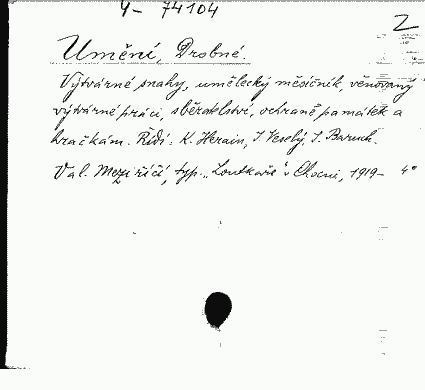 4- 74104
2
Umění, Drobné.
Výtvarné snahy, umělecký měsíčník, věnovaný
výtvarné práci, sběratelství, ochraně památek a
hračkám. Řídí: K. Herain, J. Veselý, J. Baruch.
Val. Meziříčí, typ. „Loutkaře" v Chocni, 1919- 4°